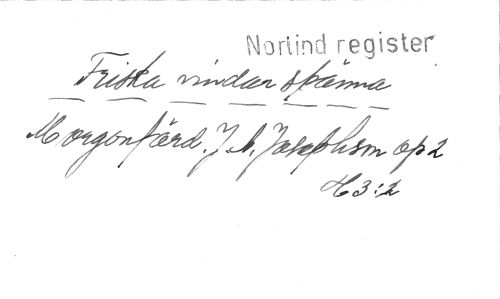 Norlind register
Friska vindar spänna
Morgonfärd. J. A. Josephson op 2
H 3:2